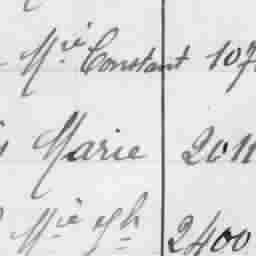 Mie Constant 107
Marie 2011
Mie Jh 2400